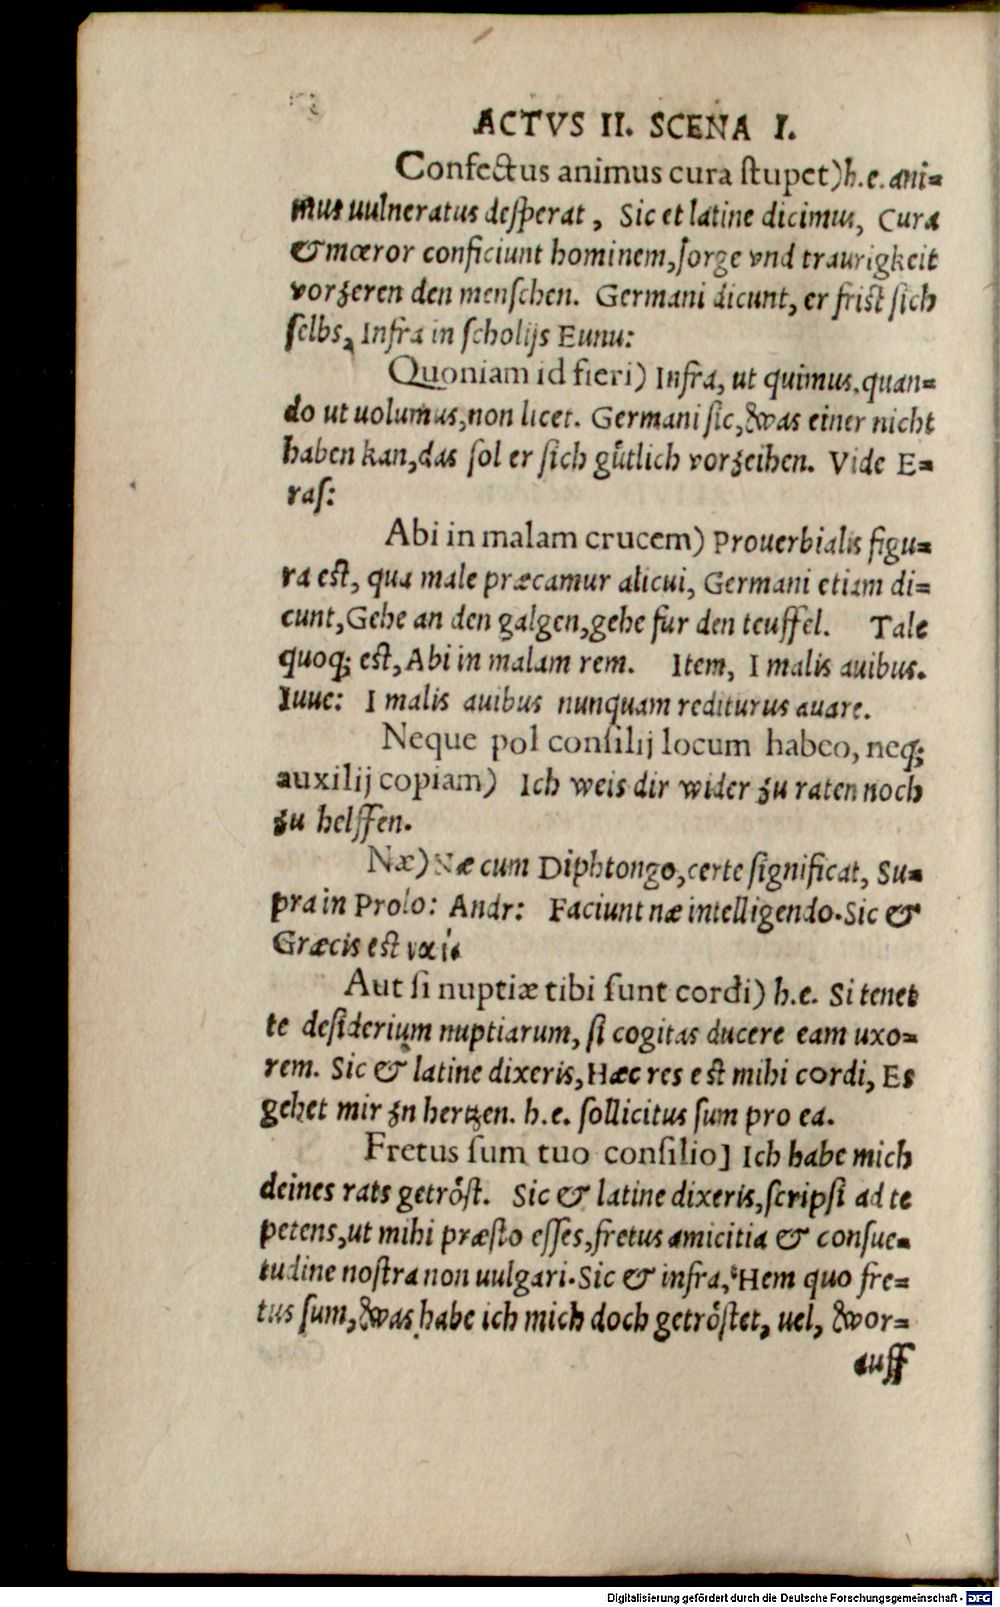 ACTVS II. SCENA I.
Confectus animus cura stupet) h.e. ani=
mus uulneratus desperat, Sic et latine dicimus, Cura
& mœror conficiunt hominem, sorge vnd traurigkeit
vorzeren den menschen. Germani dicunt, er frist sich
selbs, Infra in scholijs Eunu:
Quoniam id fieri) Infra, ut quimus, quan=
do ut uolumus, non licet. Germani sic, Was einer nicht
haben kan, das sol er sich gůtlich vorzeihen. Vide E=
ras:
Abi in malam crucem) Prouerbialis figu=
ra est, qua male præcamur alicui, Germani etiam di=
cunt, Gehe an den galgen, gehe fur den teuffel. Tale
quoq; est, Abi in malam rem. Item, I malis auibus.
Iuue: I malis auibus nunquam rediturus auare.
Neque pol consilij locum habeo, neq;
auxilij copiam) Ich weis dir wider zu raten noch
zu helffen.
Næ) Næ cum Diphtongo, certe significat, Su=
pra in Prolo: Andr: Faciunt næ intelligendo. Sic &
Græcis est
Aut si nuptiæ tibi sunt cordi) h.e. Si tenet
te desiderium nuptiarum, si cogitas ducere eam uxo=
rem. Sic & latine dixeris, Hæc res est mihi cordi, Es
gehet mir zn hertzen. h.e. sollicitus sum pro ea.
Fretus sum tuo consilio] Ich habe mich
deines rats getröst. Sic & latine dixeris, scripsi ad te
petens, ut mihi præsto esses, fretus amicitia & consue=
tudine nostra non uulgari. Sic & infra, Hem quo fre=
tus sum, Was habe ich mich doch getröstet, uel, Wor=
auff
Digitalisierung gefördert durch die Deutsche Forschungsgemeinschaft - DFG